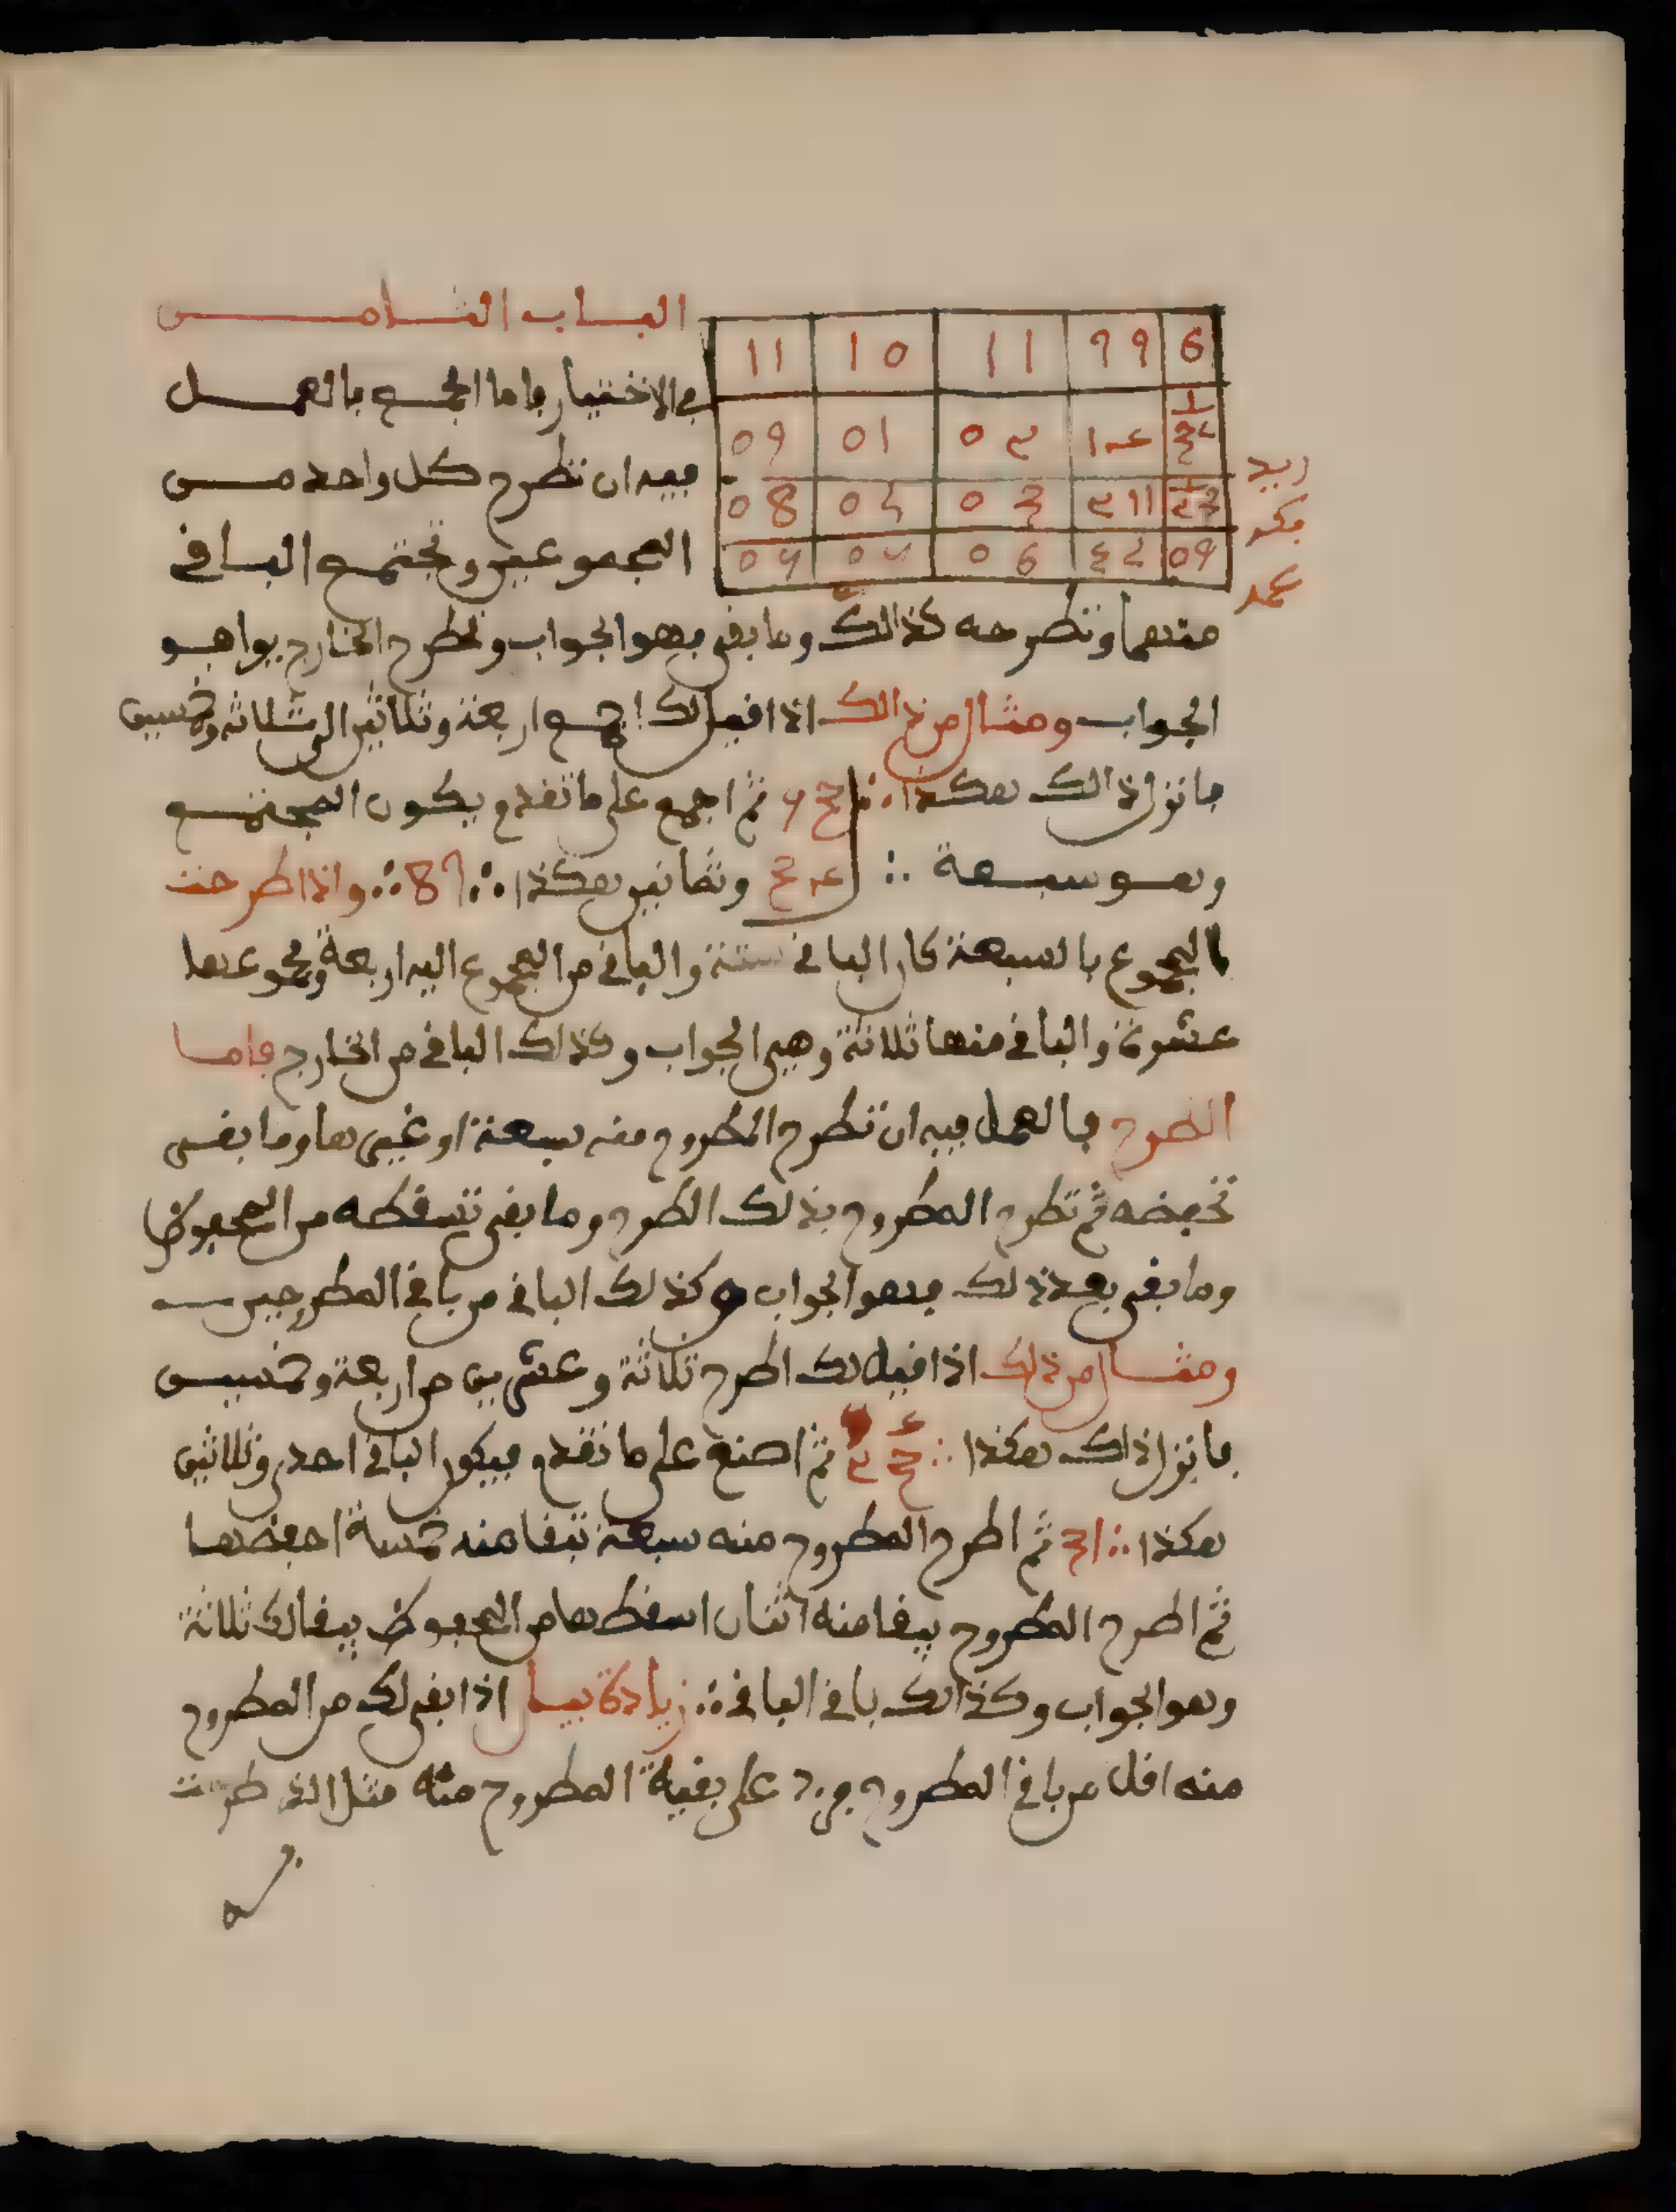 الباب الثامن
في الاختيار فاما الجمع فالعمل
فيه ان تطرح كل واحد من
المجموعين وتجتمع الباقي
11 10 11 99 6
09 01 0
08 0 0
0 0 0 6 09
زيد
بكر
محمد
منهما وتطرحه كذالك وما بقى فهو الجواب وتطرح الخارج يواهو
الجواب ومثال من ذالك اذا قيل لك اجمع اربعة وثلاثين الى ثلاثة وخمسين
فانزل ذالك هكذا ثم اجمع على ما تقدم يكون المجتمع
وهو سبعة وثمانين هكذا واذا طرحت
المجموع بالسبعة كان الباقي ستة والباقي من المجموع اليه اربعة ومجموعها
عشرة والباقي منها ثلاثة وهي الجواب وكذلك الباقي من الخارج فاما
الطرح فالعمل فيه ان تطرح المطروح منه سبعة او غيرها وما بقى
تحفضه ثم تطرح المطروح بذلك الطرح وما بقى تسقطه من المحفوظ
وما بقى بعد ذلك فهو الجواب وكذلك الباقي من باقي المطروحين
ومثال من ذلك اذا قيل لك اطرح ثلاثة وعشرين من اربعة وخمسين
فانزل ذالك هكذا ثم اصنع على ما تقدم فيكون الباقي احدى وثلاثين
هكذا ثم اطرح المطروح منه سبعة تبقا منه خمسة احفضها
ثم اطرح المطروح يبقا منه اثنان اسقطها من المحفوظ يبقا لك ثلاثة
وهو الجواب وكذالك باقي الباقي زيادة بيان اذا بقى لك من المطروح
منه اقل من باقي المطروح فزد على بقية المطروح منه مثل الذ طرحت